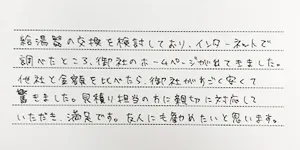 給湯器の交換を検討しており、インターネットで
調べたところ、御社のホームページが出てきました。
他社と金額を比べたら、御社がすごく安くて
驚きました。見積り担当の方に親切に対応して
いただき、満足です。友人にも勧めたいと思います。